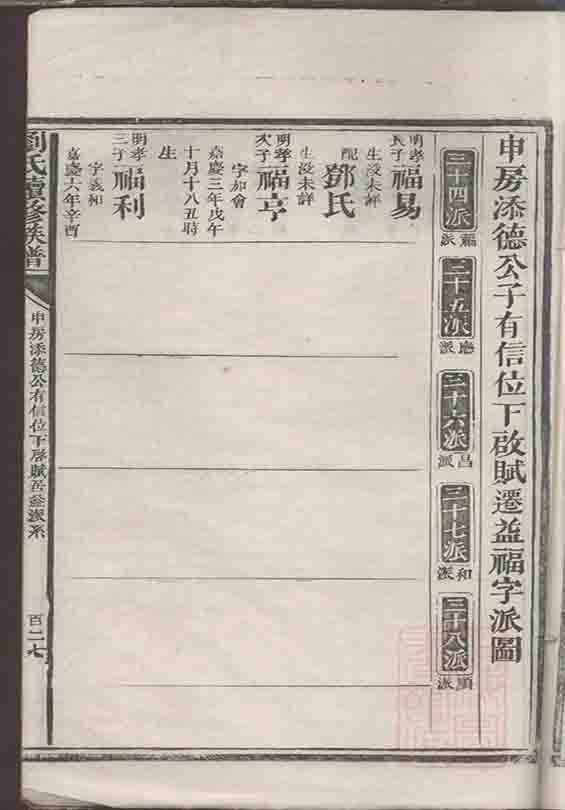 申房添德公子有信位下啟賦遷益福字派圖
二十四派
福派
二十五派
應派
二十六派
昌派
二十七派
和派
二十八派
順派
明孝長子福易
生没未詳
配鄧氏
生没未詳
明孝次子福亨
字如會
嘉慶三年戊午
十月十八丑時
生
明孝三子福利
字義和
嘉慶六年辛酉
劉氏續修族譜
申房添德公有信位下啟賦遷益派系
百二七